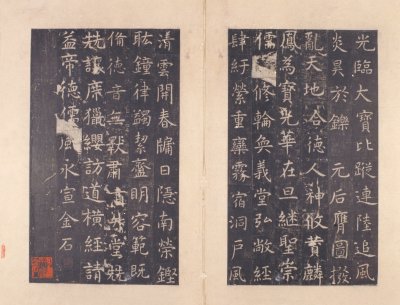 光臨大寶比蹤連陸追風
炎昊於鑠元后膺圖撥
亂天地合德人神攸贊麟
鳳為寶光華在旦繼聖崇
儒修輪奐義堂弘敞經
肆紆縈重欒霧宿洞戶風
清雲開春牖日隱南榮鏗
耾鐘律蠲絜齍明容範既
備德音無斁肅堂兢
兢讓席獵纓訪道橫經請
益帝德儒風永宣金石